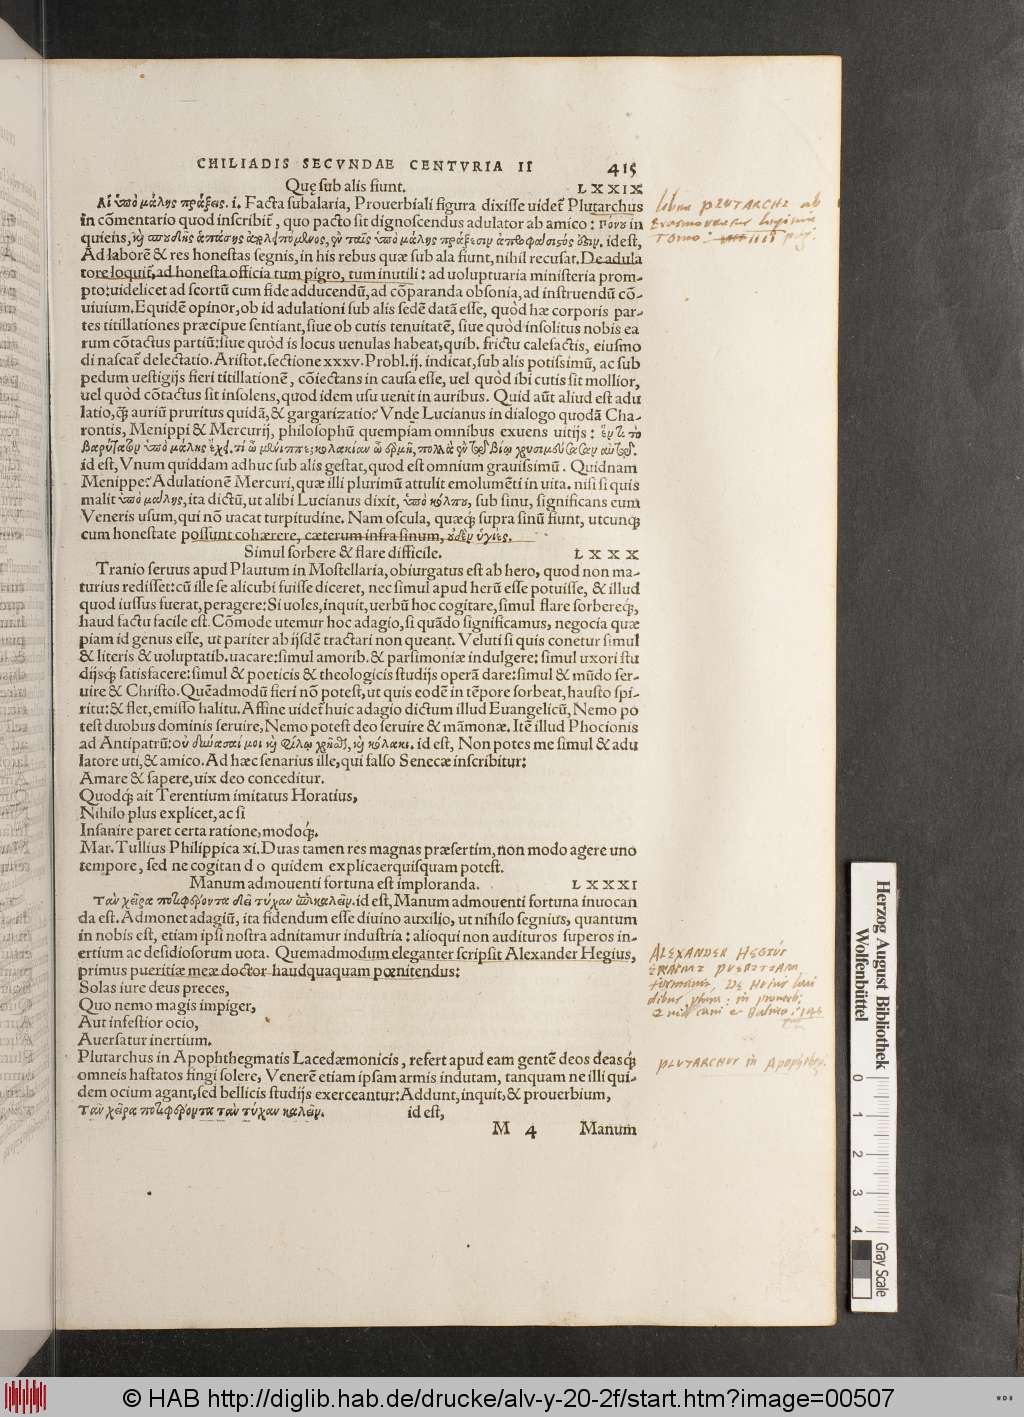 CHILIADIS SECVNDAE CENTVRIA II 415
Quę sub alis fiunt. LXXIX
Αἱ ὑπὸ μάλης πράξεις. i. Facta subalaria, Prouerbiali figura dixisse uidet̃ Plutarchus
in cõmentario quod inscribit̃, quo pacto sit dignoscendus adulator ab amico: in
quiens, idest,
Ad laborẽ & res honestas segnis, in his rebus quæ sub ala fiunt, nihil recusat. De adula
tore loquit̃, ad honesta officia tum pigro, tum inutili: ad uoluptuaria ministeria prom-
pto: uidelicet ad scortũ cum fide adducendũ, ad cõparanda obsonia, ad instruendũ cõ-
uiuium. Equidẽ opinor, ob id adulationi sub alis sedẽ datã esse, quòd hæ corporis par-
tes titillationes præcipue sentiant, siue ob cutis tenuitatẽ, siue quòd insolitus nobis ea
rum cõtactus partiũ: siue quòd is locus uenulas habeat, quib. frictu calefactis, eiusmo
di nascat̃ delectatio. Aristot. sectione xxxv. Probl. ij. indicat, sub alis potissimũ, ac sub
pedum uestigijs fieri titillationẽ, cõiectans in causa esse, uel quòd ibi cutis sit mollior,
uel quòd cõtactus sit insolens, quod idem usu uenit in auribus. Quid aũt aliud est adu
latio, q̃ auriũ pruritus quidã, & gargarizatio? Vnde Lucianus in dialogo quodã Cha-
rontis, Menippi & Mercurij, philosophũ quempiam omnibus exuens uitijs:
id est, Vnum quiddam adhuc sub alis gestat, quod est omnium grauissimũ. Quidnam
Menippe? Adulationẽ Mercuri, quæ illi plurimũ attulit emolumẽti in uita. nisi si quis
malit ὑπὸ μάλης, ita dictũ, ut alibi Lucianus dixit, ὑπὸ κόλπου, sub sinu, significans eum
Veneris usum, qui nõ uacat turpitudine. Nam oscula, quæq; supra sinũ fiunt, utcunq;
cum honestate possunt cohærere, cæterum infra sinum, οὐδὲν ὑγιές.
Simul sorbere & flare difficile. LXXX
Tranio seruus apud Plautum in Mostellaria, obiurgatus est ab hero, quod non ma-
turius redisset: cũ ille se alicubi fuisse diceret, nec simul apud herũ esse potuisse, & illud
quod iussus fuerat, peragere: Si uoles, inquit, uerbũ hoc cogitare, simul flare sorbereq;,
haud factu facile est. Cõmode utemur hoc adagio, si quãdo significamus, negocia quæ
piam id genus esse, ut pariter ab ijsdẽ tractari non queant. Veluti si quis conetur simul
& literis & uoluptatib. uacare: simul amorib. & parsimoniæ indulgere: simul uxori stu
dijsq; satisfacere: simul & poeticis & theologicis studijs operã dare: simul & mũdo ser-
uire & Christo. Quẽadmodũ fieri nõ potest, ut quis eodẽ in tẽpore sorbeat, hausto spi-
ritu: & flet, emisso halitu. Affine uidet̃ huic adagio dictum illud Euangelicũ, Nemo po
test duobus dominis seruire, Nemo potest deo seruire & mãmonæ. Itẽ illud Phocionis
ad Antipatrũ: οὐ δύνασαί μοι καὶ φίλῳ χρῆσθαι, καὶ κόλακι. id est, Non potes me simul & adu
latore uti, & amico. Ad hæc senarius ille, qui falso Senecæ inscribitur:
Amare & sapere, uix deo conceditur.
Quodq; ait Terentium imitatus Horatius,
Nihilo plus explicet, ac si
Insanire paret certa ratione, modoq;.
Mar. Tullius Philippica xi. Duas tamen res magnas præsertim, non modo agere uno
tempore, sed ne cogitan d o quidem explicaerquisquam potest.
Manum admouenti fortuna est imploranda. LXXXI
Τὰν χεῖρα ποτιφέροντα δεῖ τύχαν ἐπικαλεῖν. id est, Manum admouenti fortuna inuocan
da est. Admonet adagiũ, ita fidendum esse diuino auxilio, ut nihilo segnius, quantum
in nobis est, etiam ipsi nostra adnitamur industria: alioqui non audituros superos in-
ertium ac desidiosorum uota. Quemadmodum eleganter scripsit Alexander Hegius,
primus pueritiæ meæ doctor haudquaquam pœnitendus:
Solas iure deus preces,
Quo nemo magis impiger,
Aut infestior ocio,
Auersatur inertium.
Plutarchus in Apophthegmatis Lacedæmonicis, refert apud eam gentẽ deos deasq;
omneis hastatos fingi solere, Venerẽ etiam ipsam armis indutam, tanquam ne illi qui-
dem ocium agant, sed bellicis studijs exerceantur: Addunt, inquit, & prouerbium,
Τὰν χεῖρα ποτιφέροντα τὰν τύχαν καλεῖν. id est,
M 4 Manum
liber PLUTARCHI ab
Erasmo
Tomo: IIII
ALEXANDER HEGIUS
ERASMI PUERITIAM
PLUTARCHUS in Apophtheg.
Herzog August Bibliothek
Wolfenbüttel
0 1 2 3 4
Gray Scale
© HAB http://diglib.hab.de/drucke/alv-y-20-2f/start.htm?image=00507